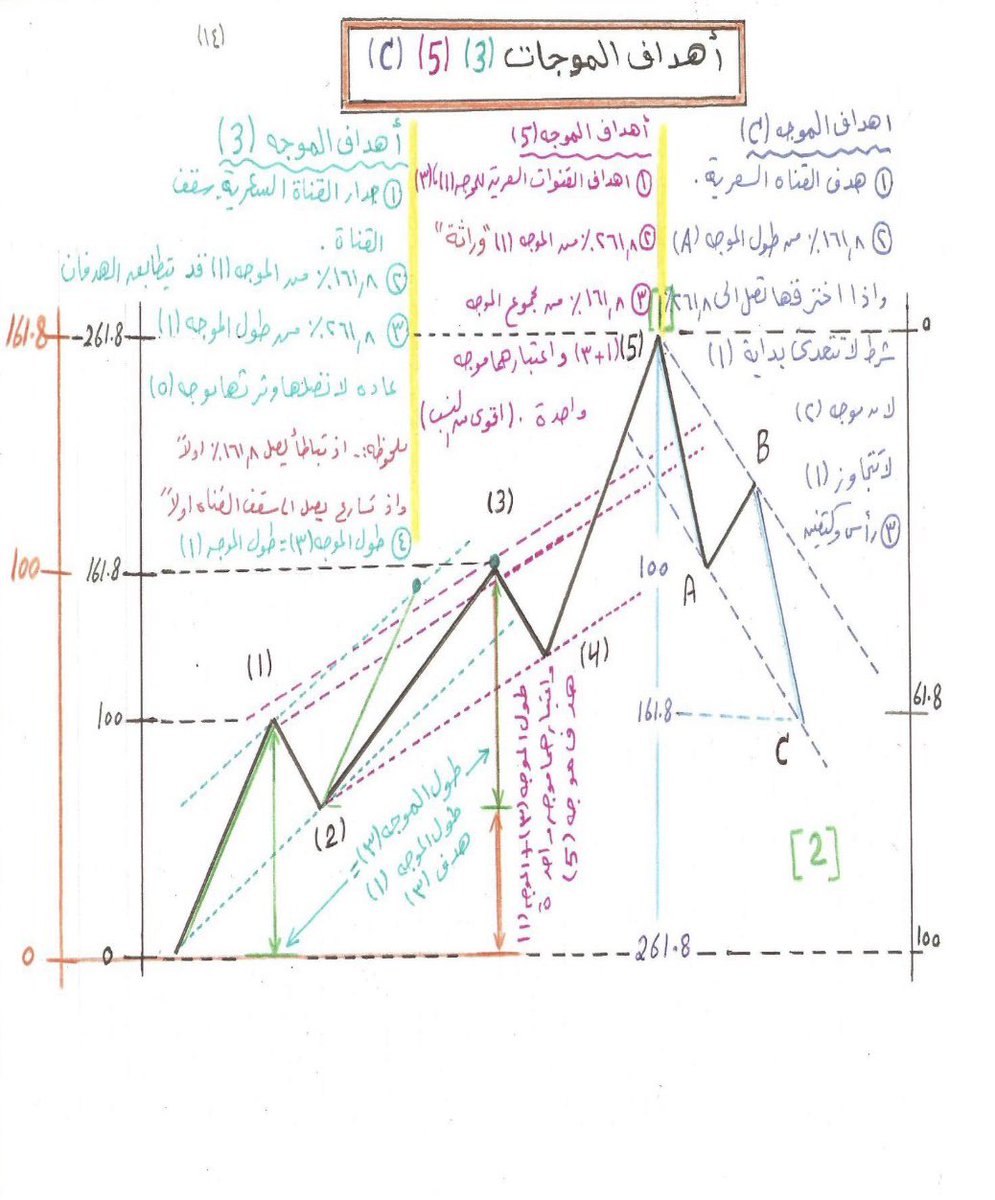 (١٤)
أهداف الموجات (3) (5) (C)
اهداف الموجه (C)
① هدف القناه السعرية.
② ١٦١,٨٪ من طول الموجه (A)
واذا اخترقها تصل الى ٢٦١,٨٪
شرط لا تتعدى بداية (1)
لانه موجه (٢)
لا تتجاوز (1)
③ رأس وكتفين
أهداف الموجه (5)
① اهداف القنوات السعرية للموجه (1)،(٣)
② ٢٦١,٨٪ من الموجه (1) "وراثة"
③ ١٦١,٨٪ من مجموع الموجه
(1+٣) واعتبارهما موجه
واحدة. (اقوى من النسب)
أهداف الموجه (3)
① جدار القناة السعرية. سقف
القناة.
② ١٦١,٨٪ من الموجه (1) قد يتطابق الهدفان
③ ٢٦١,٨٪ من طول الموجه (1)
عاده لا تصلها وترثها موجه (٥)
ملحوظه:- اذ تباطأ يصل ١٦١,٨٪ اولاً
واذ تسارع يصل الى سقف القناه اولاً"
④ طول الموجه (٣) = طول الموجه (1)
161.8
-261.8
0
[1]
(5)
B
(3)
100
161.8
100
A
(4)
(1)
61.8
100
161.8
C
(2)
[2]
طول الموجه (٣) =
طول الموجه (1)
هدف (٣)
طول الموجه (٣) + الموجه (1)
واعتبارهما موجه واحدة
هدف موجه (5)
0
0
261.8
100